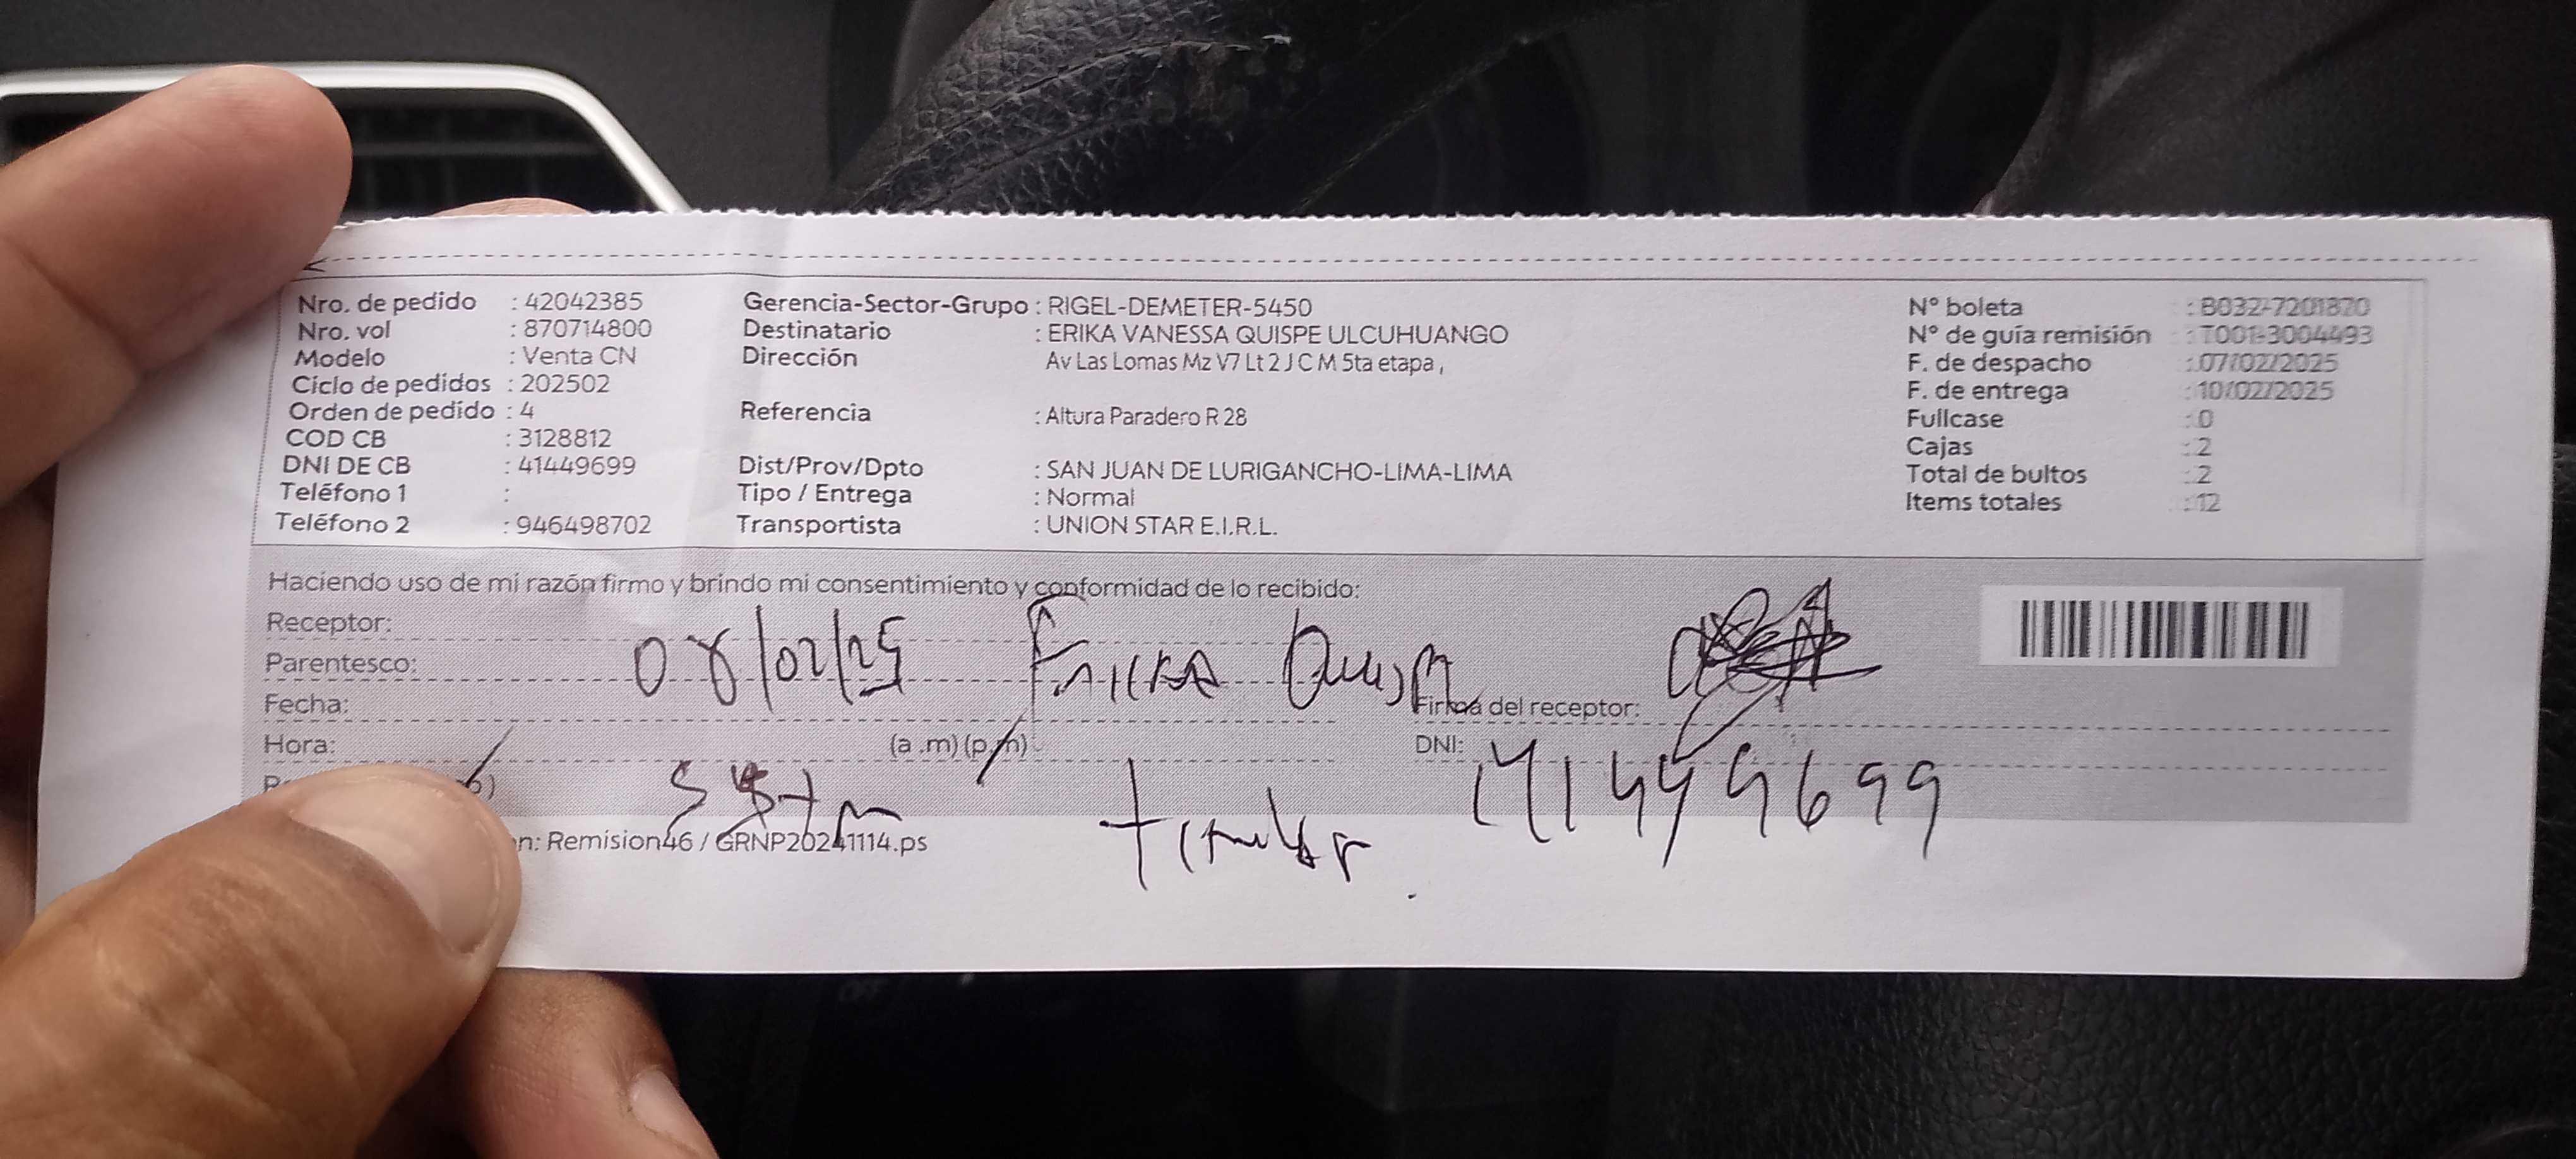 Nro. de pedido : 42042385 Gerencia-Sector-Grupo : RIGEL-DEMETER-5450 N° boleta : B032-7201870
Nro. vol : 870714800 Destinatario : ERIKA VANESSA QUISPE ULCUHUANGO N° de guía remisión : T001-3004493
Modelo : Venta CN Dirección Av Las Lomas Mz V7 Lt 2 J C M 5ta etapa , F. de despacho : 07/02/2025
Ciclo de pedidos : 202502 F. de entrega : 10/02/2025
Orden de pedido : 4 Referencia : Altura Paradero R 28 Fullcase : 0
COD CB : 3128812 Cajas : 2
DNI DE CB : 41449699 Dist/Prov/Dpto : SAN JUAN DE LURIGANCHO-LIMA-LIMA Total de bultos : 2
Teléfono 1 : Tipo / Entrega : Normal Items totales : 12
Teléfono 2 : 946498702 Transportista : UNION STAR E.I.R.L.
Haciendo uso de mi razón firmo y brindo mi consentimiento y conformidad de lo recibido:
Receptor:
Parentesco: 08/02/25
Fecha: Firma del receptor:
Hora: (a.m)(p.m) DNI: 41449699
n: Remision46 / GRNP20241114.ps